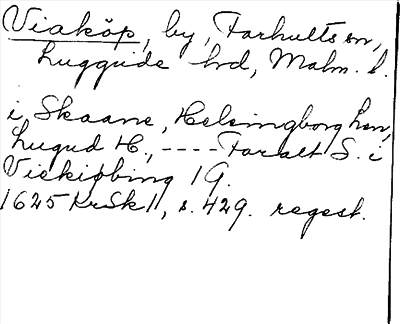 Viaköp, by, Farhults sn,
Luggude hrd, Malm. l.
i Skaane, Helsingborg len,
Lugud H., ---- Faralt S. i
Viekiøbing 19.
1625 KrSk II, s. 429. regest.